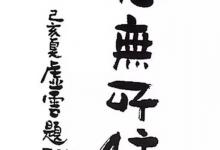 無所住
己亥夏虛雲題